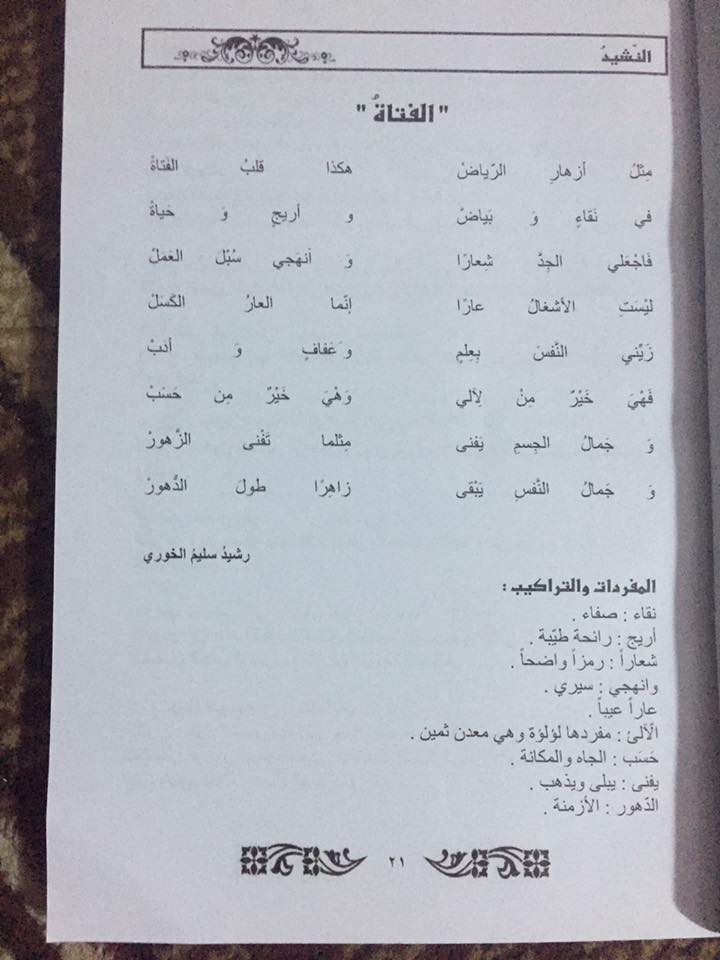 النّشيدُ
" الفتاةُ "
مِثلُ أزهارِ الرّياضْ هكذا قلبُ الفَتاةْ
في نَقاءٍ وَ بَياضْ و أريجٍ وَ حَياةْ
فَاجْعَلي الجِدَّ شِعارًا وَ أنهَجي سُبُلَ العَمَلْ
ليْسَتِ الأشغالُ عارًا إنّما العارُ الكَسَلْ
زَيِّني النَّفسَ بِعِلمٍ وَعَفافٍ وَ أدَبْ
فَهْيَ خَيْرٌ مِنْ لِآلي وَهْيَ خَيْرٌ مِن حَسَبْ
وَ جَمالُ الجِسمِ يَفنى مِثلما تَفْنى الزُّهورْ
وَ جَمالُ النَّفسِ يَبْقى زاهِرًا طولَ الدُّهورْ
رشيدُ سليمُ الخوري
المفردات والتراكيب :
نقاء : صفاء .
أريج : رائحة طيّبة .
شعاراً : رمزاً واضحاً .
وانهجي : سيري .
عاراً عيباً .
الّآلئ : مفردها لؤلؤة وهي معدن ثمين .
حَسَب : الجاه والمكانة .
يفنى : يبلى ويذهب .
الدّهور : الأزمنة .
٢١